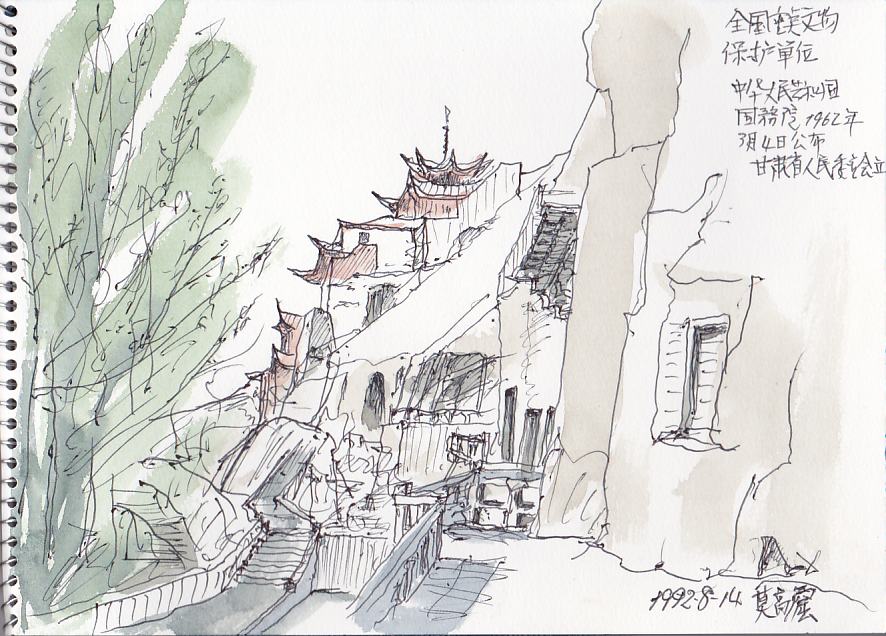 全国重点文物
保护单位
中华人民共和国
国務院 1962年
3月4日公布
甘肃省人民委员会立
1992·8·14 莫高窟